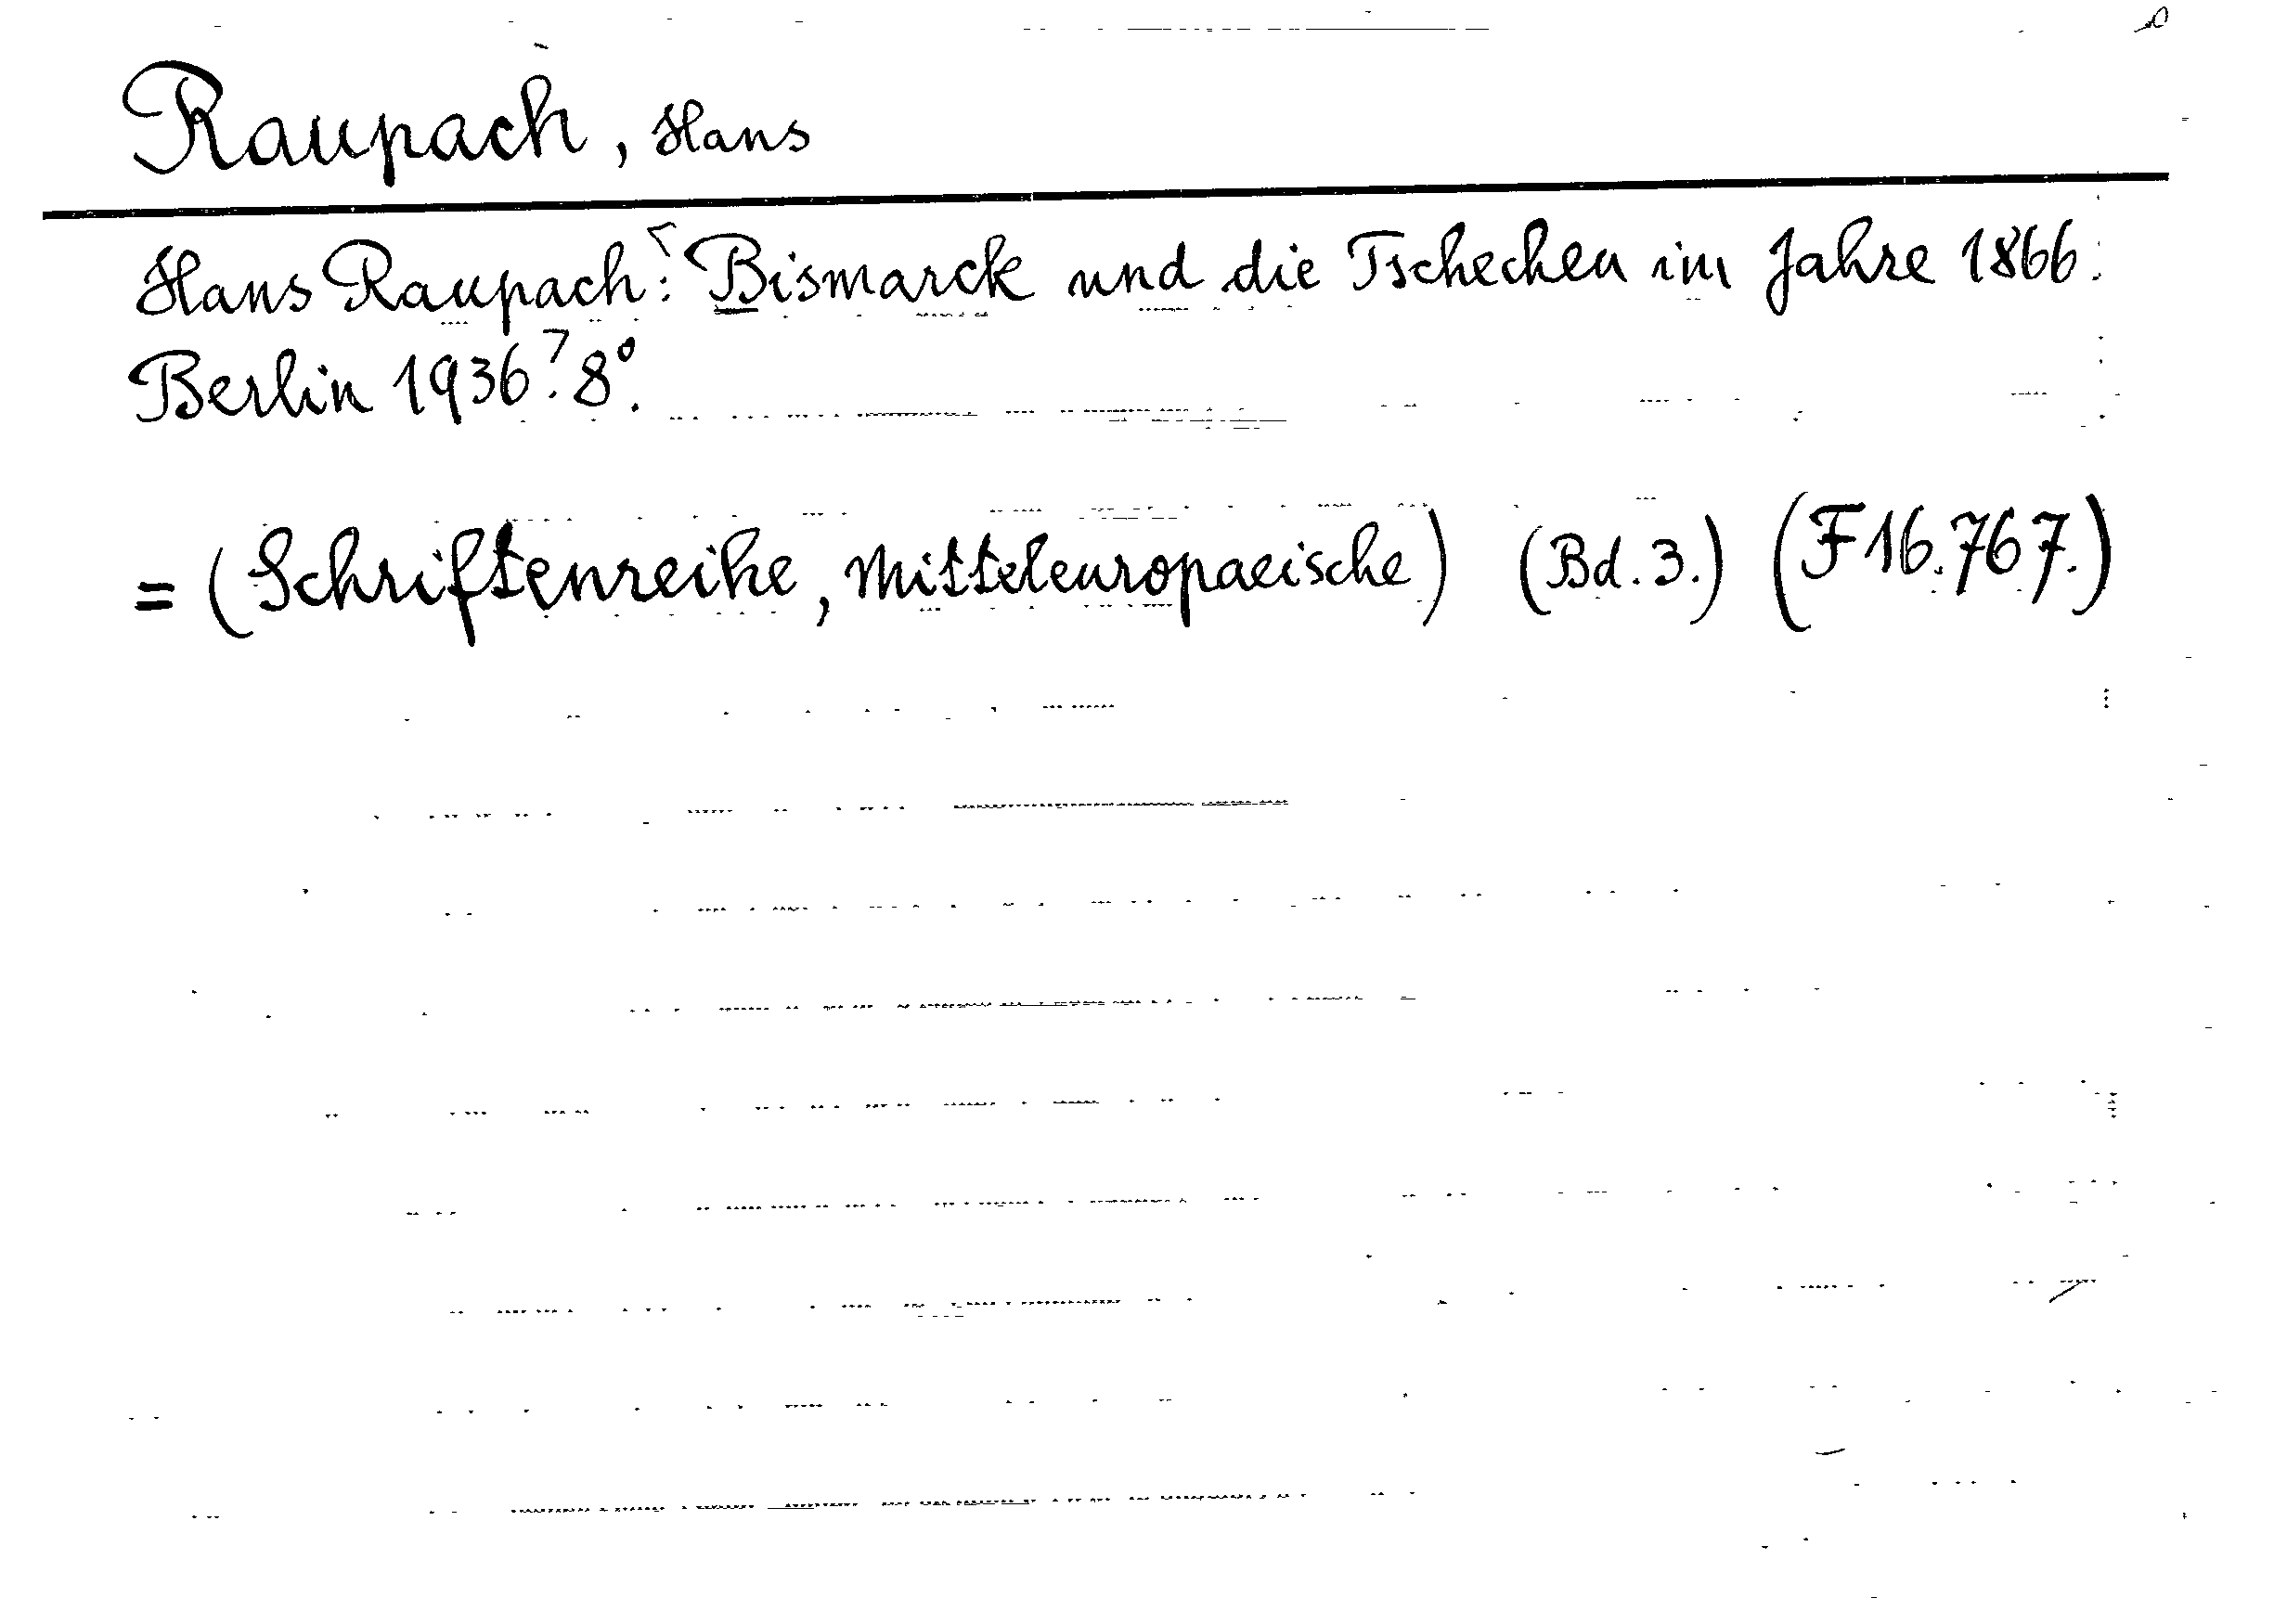 Raupach, Hans
Hans Raupach: Bismarck und die Tschechen im Jahre 1866.
Berlin 1936. 8°.
= (Schriftenreihe, Mitteleuropaeische) (Bd. 3.) (F 16.767.)